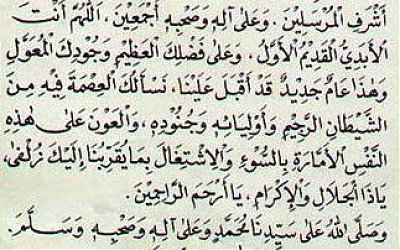 أَشْرَفِ الْمُرْسَلِيْنَ. وَعَلَى آلِهِ وَصَحْبِهِ أَجْمَعِيْنَ، اَللّٰهُمَّ أَنْتَ
الْأَبَدِيُّ الْقَدِيْمُ الْأَوَّلُ، وَعَلَى فَضْلِكَ الْعَظِيْمِ وَجُوْدِكَ الْمُعَوَّلِ
وَهٰذَا عَامٌ جَدِيْدٌ قَدْ أَقْبَلَ عَلَيْنَا، نَسْأَلُكَ الْعِصْمَةَ فِيْهِ مِنَ
الشَّيْطَانِ الرَّجِيْمِ وَأَوْلِيَائِهِ وَجُنُوْدِهِ، وَالْعَوْنَ عَلَى هٰذِهِ
النَّفْسِ الْأَمَّارَةِ بِالسُّوْءِ وَالْاِشْتِغَالِ بِمَا يُقَرِّبُنَا إِلَيْكَ زُلْفَى،
يَا ذَا الْجَلَالِ وَالْإِكْرَامِ، يَا أَرْحَمَ الرَّاحِمِيْنَ.
وَصَلَّى اللهُ عَلَى سَيِّدِنَا مُحَمَّدٍ وَعَلَى آلِهِ وَصَحْبِهِ وَسَلَّمَ.